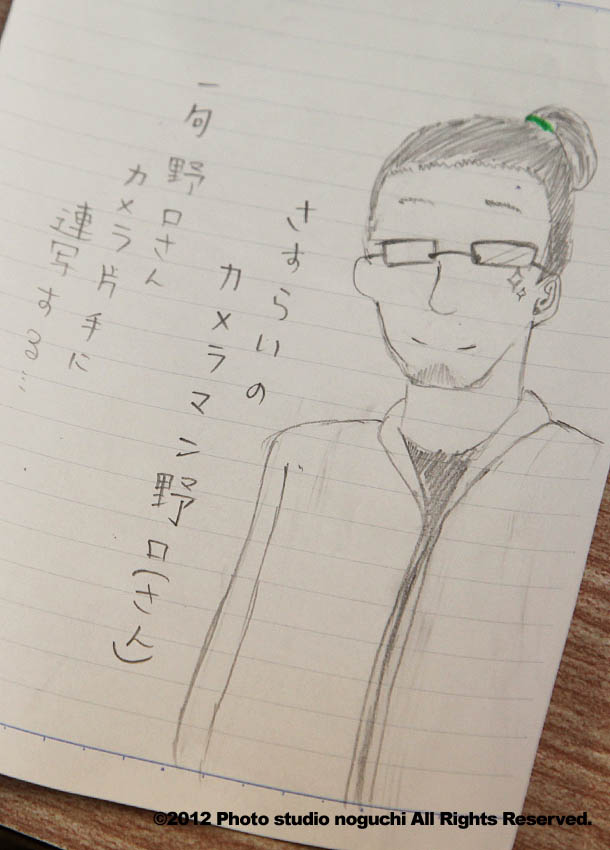 さすらいの
カメラマン野口(さん)
一句
野口さん
カメラ片手に
連写する…
©2012 Photo studio noguchi All Rights Reserved.